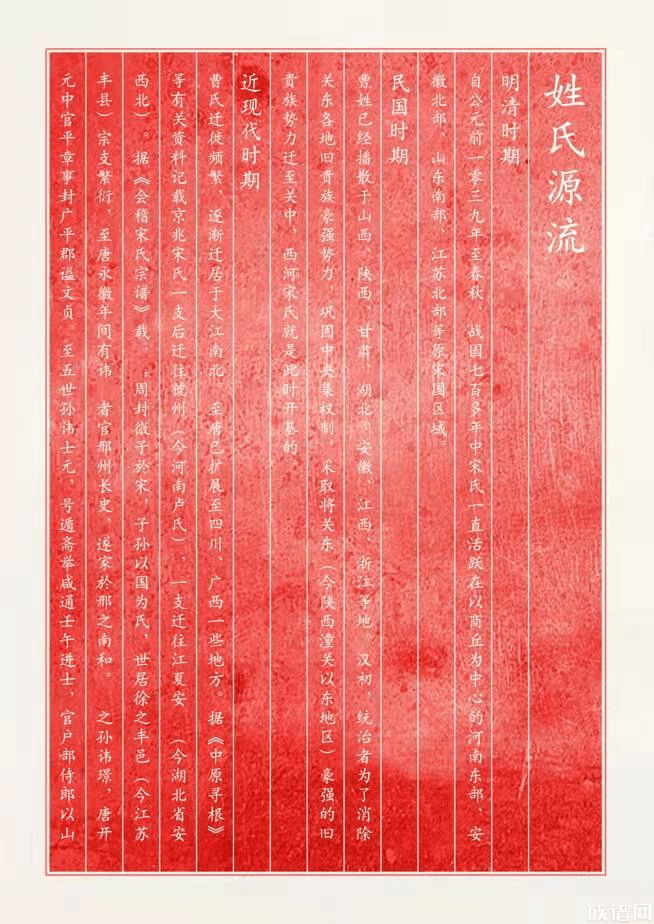 姓氏源流
明清时期
自公元前一零三九年至春秋、战国七百多年中宋氏一直活跃在以商丘为中心的河南东部、安
徽北部、山东南部、江苏北部等原宋国区域。
民国时期
曹姓已经播散于山西、陕西、甘肃、湖北、安徽、江西、浙江等地。汉初，统治者为了消除
关东各地旧贵族豪强势力，巩固中央集权制，采取将关东（今陕西潼关以东地区）豪强的旧
贵族势力迁至关中，西河宋氏就是此时开基的
近现代时期
曹氏迁徙频繁，逐渐迁居于大江南北，至唐已扩展至四川、广西一些地方。据《中原寻根》
等有关资料记载京兆宋氏一支后迁往虢州（今河南卢氏），一支迁往江夏安（今湖北省安
西北）。据《会稽宋氏宗谱》载：“周封微子於宋，子孙以国为氏，世居徐之丰邑（今江苏
丰县）宗支繁衍，至唐永徽年间有讳 者官邢州长史，遂家於邢之南和。 之孙讳璟，唐开
元中官平章事封广平郡谥文贞。至五世孙讳士元，号遁斋举咸通壬午进士，官户部侍郎以山
族谱网